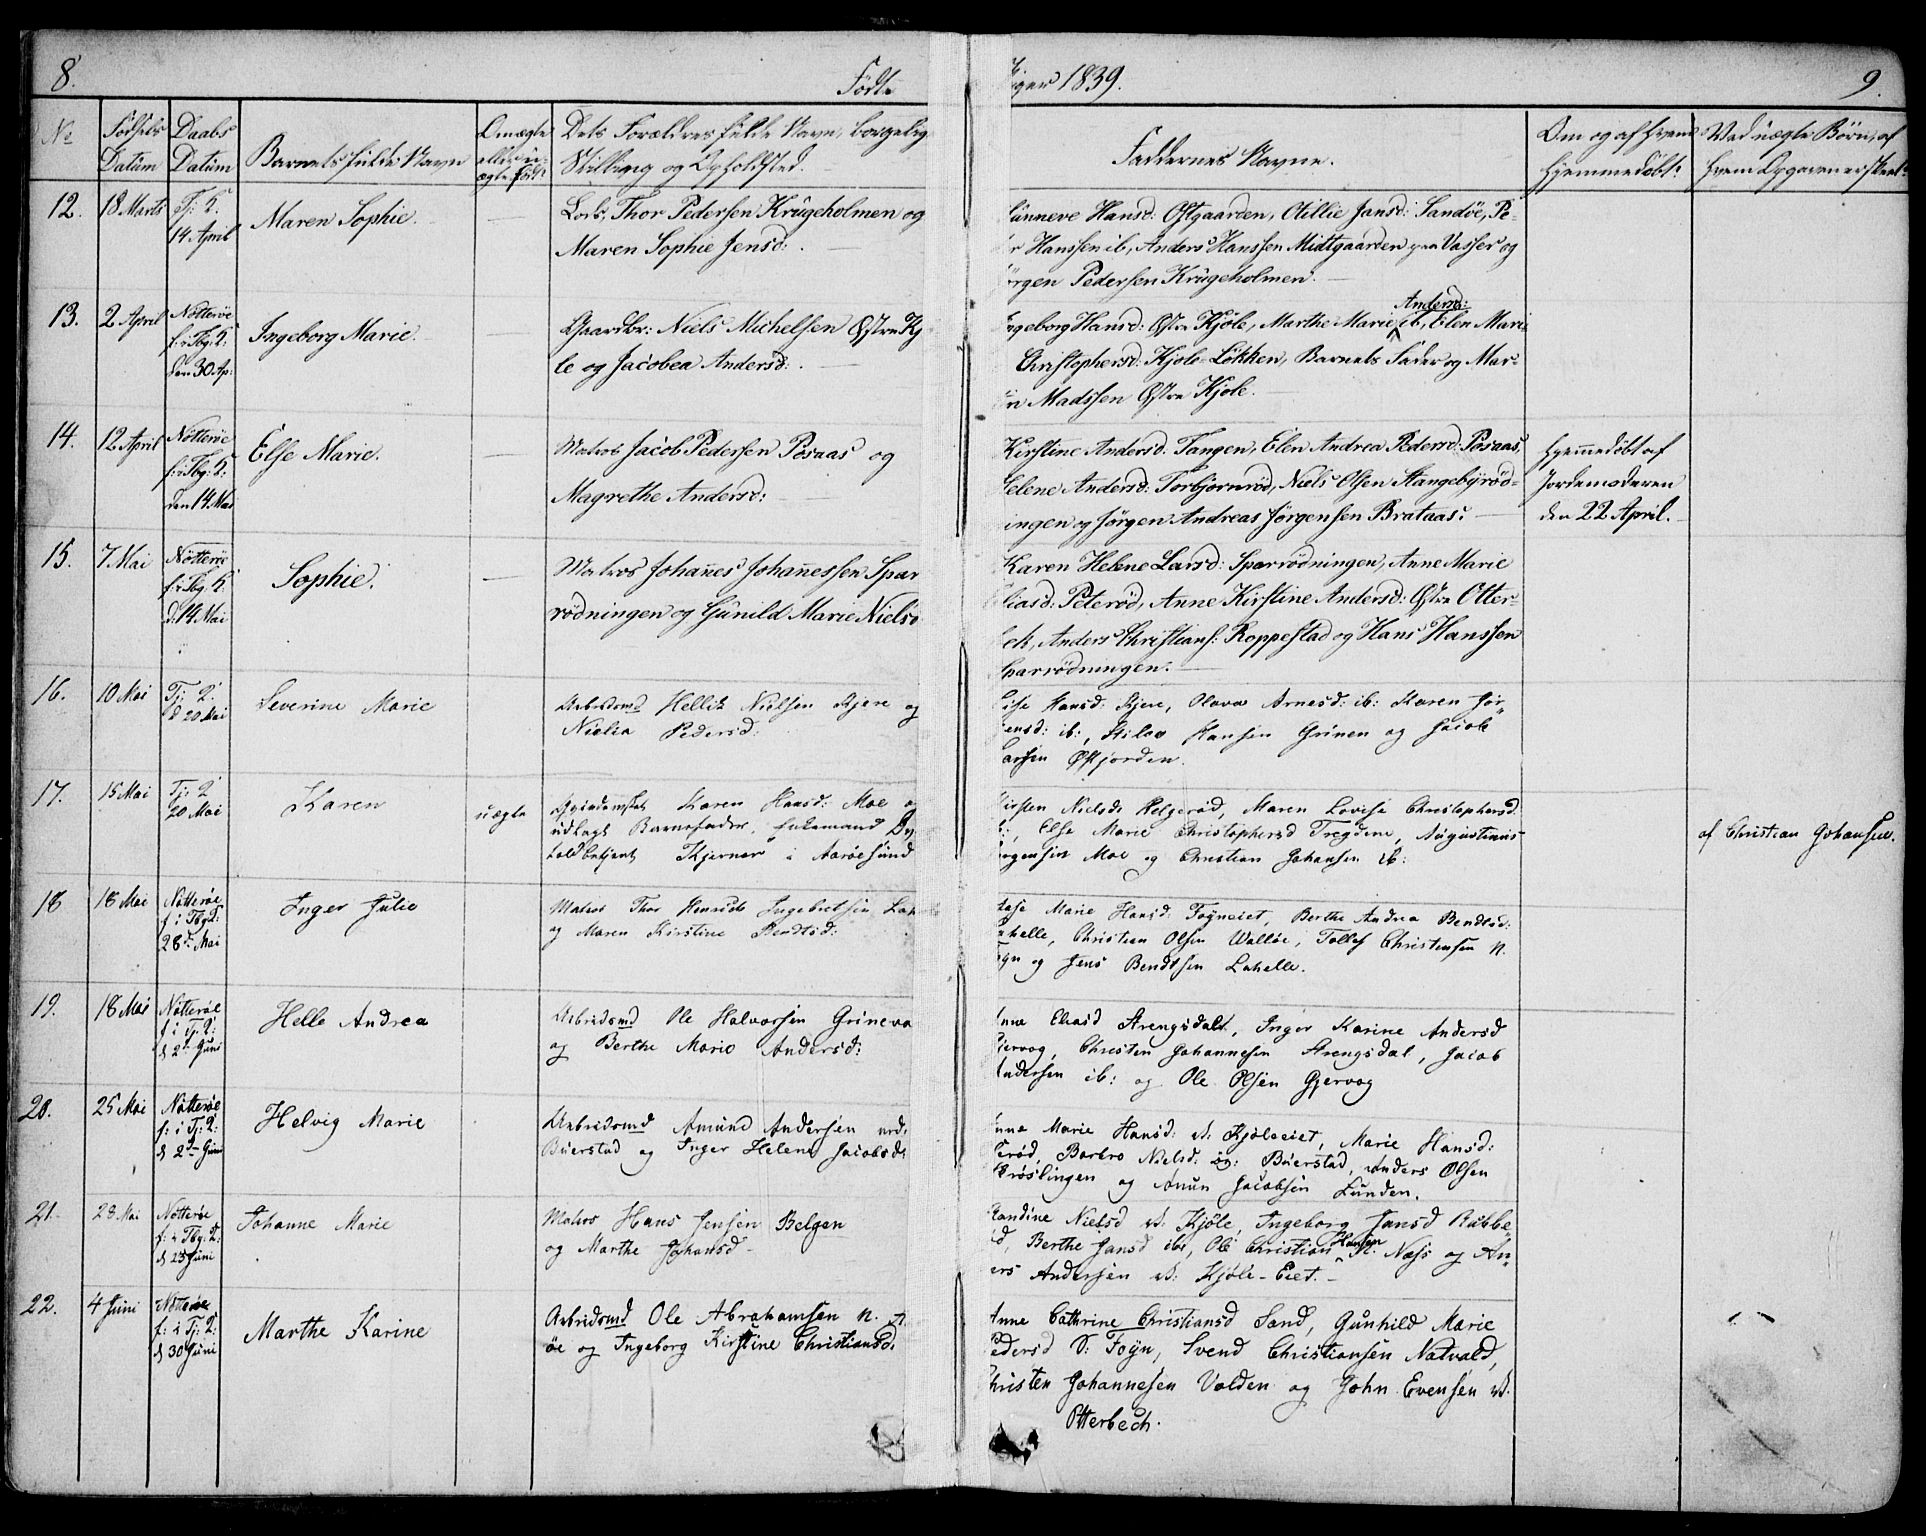 8.
Födte
Piger 1839.
9.
No
Födsels Datum
Daabs Datum
Barnets fulde Navn
Om ægte eller uægte født.
Dets Forældres fulde Navn, borgelig
Stilling og Opholdsted.
Faddernes Navne.
Om og af hvem hjemmedøbt.
Ved uægte Børn, af
12.
18 Marts
Tj: K.
14 April
Maren Sophie.
Lods, Thor Pedersen Krügeholmen og
Maren Sophie Jensd:
Hansd: Østgaarden, Otillie Jansd: Sandöe, Pe-
Hanssen ib, Anders Hanssen Midtgaarden paa Vasser og
Pedersen Krügeholmen.
13.
2 April
Nötteröe
f: i Tbg: K:
den 30 Ap:
Ingeborg Marie.
Gaardbr: Niels Michelsen Østre Kjö
le og Jacobea Andersd:
Andersd:
Ingeborg Hansd: Østre Kjöle, Marthe Marie ib, Elen Marie
Christophersd: Kjole-Lökken, Barnets Fader og Mar-
Madssen Østre Kjöle.
14.
12 April
Nötteröe
f: i Tbg: K:
den 14 Mai
Else Marie.
Matros Jacob Pedersen Posaas og
Magrethe Andersd:
Kirstine Andersd: Tangen, Elen Andrea Pedersd: Posaas,
Helene Andersd: Torbjörnröd, Niels Olsen Stangebyröd-
ningen og Jörgen Andreas Jörgensen Brataas:
hjemmedøbt af
Jordemoderen
den 22 April.
15.
7 Mai
Nötteröe
f: i Tbg: K:
d: 14 Mai
Sophie.
Matros Johannes Johannessen Spar
rödningen og Günild Marie Nielsd
Karen Helene Larsd: Sparrödningen, Anne Marie
Eliasd: Peteröd, Anne Kirstine Andersd: Østre Otter-
bech, Anders Christians: Roppestad og Hans Hanssen
Sparrödningen.
16.
10 Mai
Tj: K.
d 20 Mai
Severine Marie
Arbeidsmd Hellik Nielsen Kjere og
Pedersd:
Hansd: Kjere, Olava Arnesd: ib: Karen Jör
gensd: ib:, Hansen Grinen og Jacob
Larsen Østjorden.
17.
15 Mai
Tj: K
20 Mai
Karen
uægte
Karen Hansd: Moe og
udlagt Barnefader,
Kjerner i Aaröesund
Nielsd Helgeröd, Maren Lovise Christophersd:
Else Marie Christophersd Tregdene, Augustinus
Jörgensen Moe og Christian Johansen ib:
af Christian Johansen.
18
18 Mai
Nötteröe
f i Tbg K:
28d Mai
Inger Julie
Matros Thor Ingebretsen
og Maren Kirstine Bendtsd:
Marie Hansd: Fögneiet, Berthe Andrea Bendtsd:
Lahelle, Christen Olsen Vallöe, Tollef Christensen N.
Fögn og Jens Bendtsen Lahelle.
19.
18 Mai
Nötteröe
f i Tj. K:
d 2d Juni
Helle Andrea
Arbeidsmd Ole Halvorsen
og Berthe Marie Andersd:
Anne Strengsdal, Inger Karine Andersd
Gjervog, Christen Johannesen Strengsdal, Jacob
Andersen ib: og Ole Olsen Gjervog
20.
25 Mai
Nötteröe
f: i Tj: K:
d 2d Juni
Helvig Marie
Arbeidsmd Amünd Andersen
Büerstad og Inger Helene Jacobsd:
Anne Marie Hansd: v: Kjöleeiet, Marie Hansd:
Barbro Nielsd: Büerstad, Anders Olsen
og Amun Jacobsen Lunden.
21.
28 Mai
Nötteröe
f: i Tbg: K:
d 23 Juni
Johanne Marie
Matros Hans Jensen Belgen
og Marthe Johansd
Randine Nielsd v: Kjöle, Ingeborg Jansd
Berthe Jansd ib:, Ole Christian Hansen N. Næss og An
ders Andersen v: Kjöle-Eiet.
22.
4 Juni
Nötteröe
f: i Tj: K:
d 30 Juni
Marthe Karine
Arbeidsmd Ole Abrahamsen N.
öe og Ingeborg Kirstine Christiansd.
Anne Cathrine Christiansd Sand, Günhild Marie
Pedersd S: Fögn, Svend Christiansen Natvald,
Christen Johannesen Volden og John Evensen v.
Otterbech.